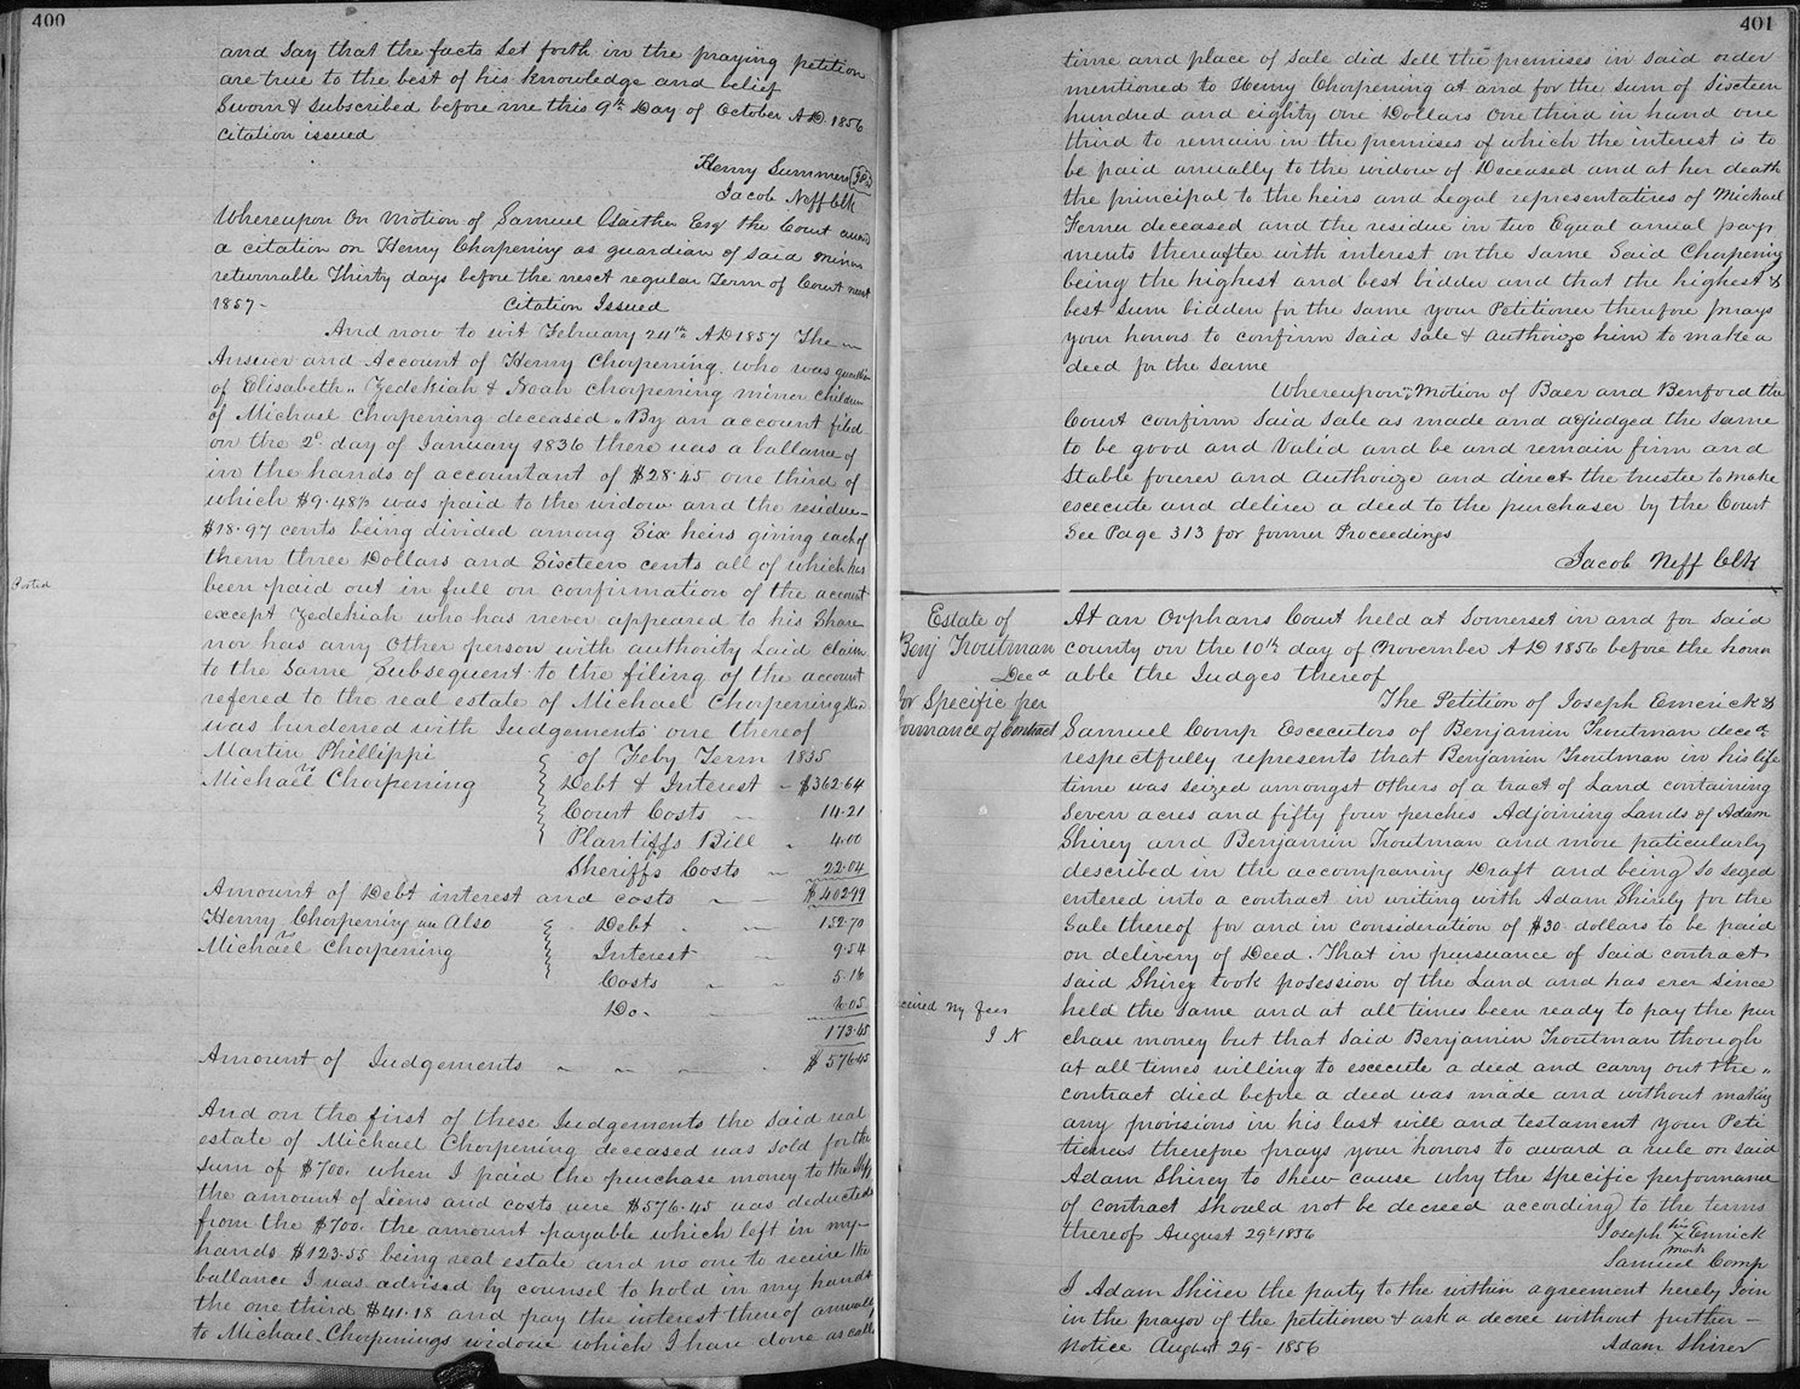 400
and Say that the facts Set forth in the praying petition
are true to the best of his knowledge and belief
Sworn & Subscribed before me this 9th Day of October AD. 1856
Citation issued
Henry Summers
Jacob Neff Clk
Whereupon On Motion of Samuel Gaither Esq the Court award
a citation on Henry Chorpening as guardian of said minor
returnable Thirty days before the next regular Term of Court next
1857- Citation Issued
And now to wit February 24th AD 1857 The
Answer and Account of Henry Chorpening who was guardian
of Elisabeth " Zedekiah & Noah Chorpening minor children
of Michael Chorpening deceased. By an account filed
on the 2d day of January 1836 there was a ballance of
in the hands of accountant of $28.45 one third of
which $9.48⅓ was paid to the widow and the residue
$18.97 cents being divided among Six heirs giving each of
them three Dollars and Sixteen cents all of which has
Posted
been paid out in full on confirmation of the account
except Zedekiah who has never appeared to his Share
nor has any Other person with authority Laid claim
to the Same Subsequent to the filing of the account
refered to the real estate of Michael Chorpening Decd
was burdened with Judgements one thereof
Martin Phillippi of Feby Term 1835
vs
Michael Chorpening Debt & Interest - $362.64
Court Costs 14.21
Plantiffs Bill 4.00
Sheriffs Costs 22.04
Amount of Debt interest and costs $402.99
Henry Chorpening Also Debt 152.70
vs
Michael Chorpening Interest 9.54
Costs 5.16
Do. 6.05
173.45
Amount of Judgements $576.45
And on the first of these Judgements the Said real
estate of Michael Chorpening deceased was sold for the
Sum of $700. when I paid the purchase money to the Shff
the amount of Liens and costs were $576.45 was deducted
from the $700. the amount payable which left in my
hands $123.55 being real estate and no one to receive the
ballance I was advised by counsel to hold in my hands
the one third $41.18 and pay the interest thereof annually
to Michael Chorpenings widow which I have done as
401
time and place of Sale did Sell the premises in said order
mentioned to Henry Chorpening at and for the Sum of Sixteen
hundred and eighty one Dollars One third in hand one
third to remain in the premises of which the interest is to
be paid anually to the widow of Deceased and at her death
the principal to the heirs and Legal representatives of Michael
Ferner deceased and the residue in two Equal anual pay
ments thereafter with interest on the Same Said Chorpening
being the highest and best bidder and that the highest &
best Sum bidden for the Same your Petitioner therefore prays
your honors to confirm Said Sale & authorize him to make a
deed for the Same
Whereupon on Motion of Baer and Benford the
Court confirm Said Sale as made and adjudged the same
to be good and Valid and be and remain firm and
Stable forever and Authorize and direct the trustee to make
execute and deliver a deed to the purchaser by the Court
See Page 313 for former Proceedings
Jacob Neff Clk
Estate of
Benj Troutman
Decd
for Specific per
formance of Contract
At an Orphans Court held at Somerset in and for Said
county on the 10th day of November AD 1856 before the honor
able the Judges thereof
The Petition of Joseph Emerick &
Samuel Comp Executors of Benjamin Troutman decd
respectfully represents that Benjamin Troutman in his life
time was seized amongst others of a tract of Land containing
Seven acres and fifty four perches Adjoining Lands of Adam
Shirey and Benjamin Troutman and more paticularly
described in the accompaning Draft and being so seized
entered into a contract in writing with Adam Shirely for the
Sale thereof for and in consideration of $30 dollars to be paid
on delivery of Deed. That in pursuance of Said contract
said Shirey took posession of the Land and has ever since
held the Same and at all times been ready to pay the pur
chase money but that Said Benjamin Troutman though
at all times willing to execute a deed and carry out the "
contract died before a deed was made and without making
any provisions in his last will and testament your Peti
tioners therefore prays your honors to award a rule on said
Adam Shirey to Shew cause why the Specific performance
of contract Should not be decreed according to the terms
thereof August 29th 1856
Joseph his X mark Emrick
Samuel Comp
I Adam Shirer the party to the within agreement hereby Join
in the prayor of the petitioner & ask a decree without further
Notice August 29 - 1856 Adam Shirer
my fees
J N